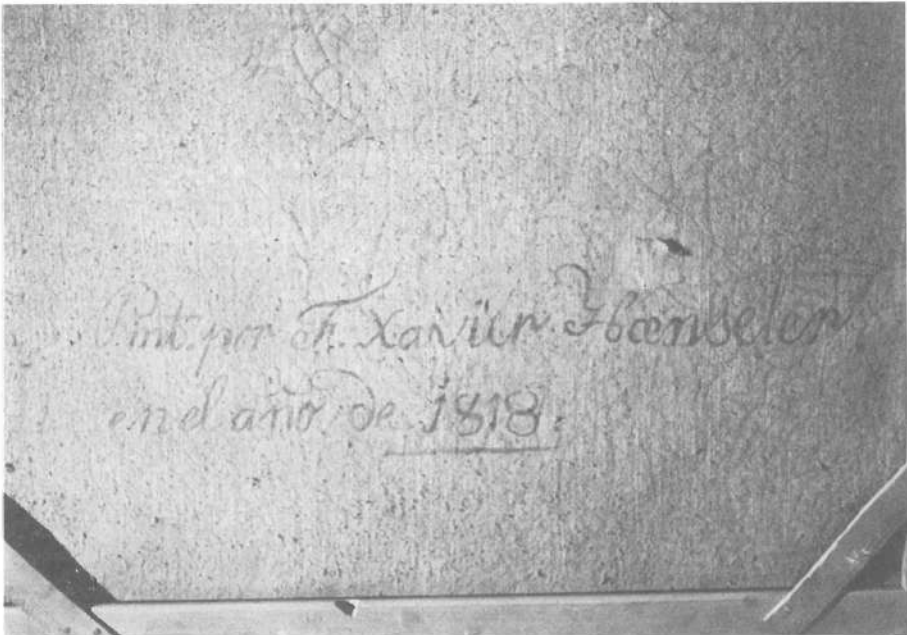 Pint. por F. Xavier Hoenseler
en el año de 1818.